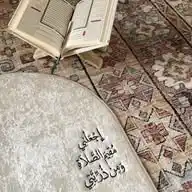 اجعلني
مقيم الصلاة
ومن ذريتي